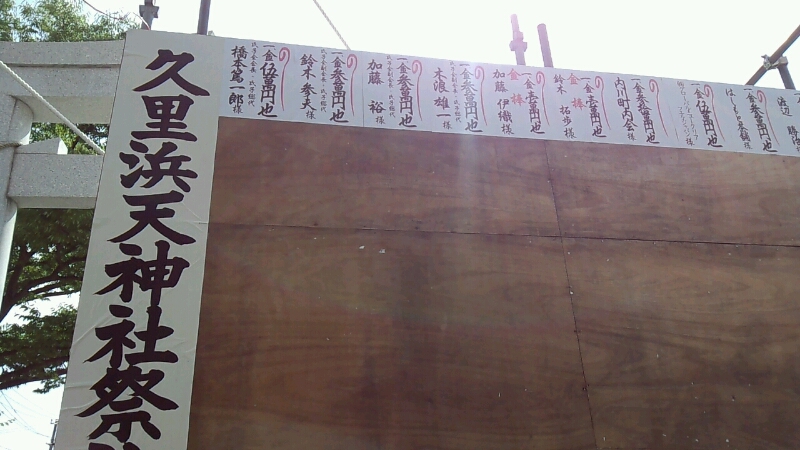 久里浜天神社祭
一金伍萬円也
氏子会会長・氏子総代
橋本篤一郎様
一金参萬円也
鈴木 孝夫様
一金参萬円也
加藤 裕様
一金参萬円也
木浪雄一様
一金壱萬円也
金 棒
加藤 伊織様
一金壱萬円也
金 棒
鈴木 拓歩様
一金参拾萬円也
内川町内会様
一金伍萬円也
一金参萬円也
渡辺